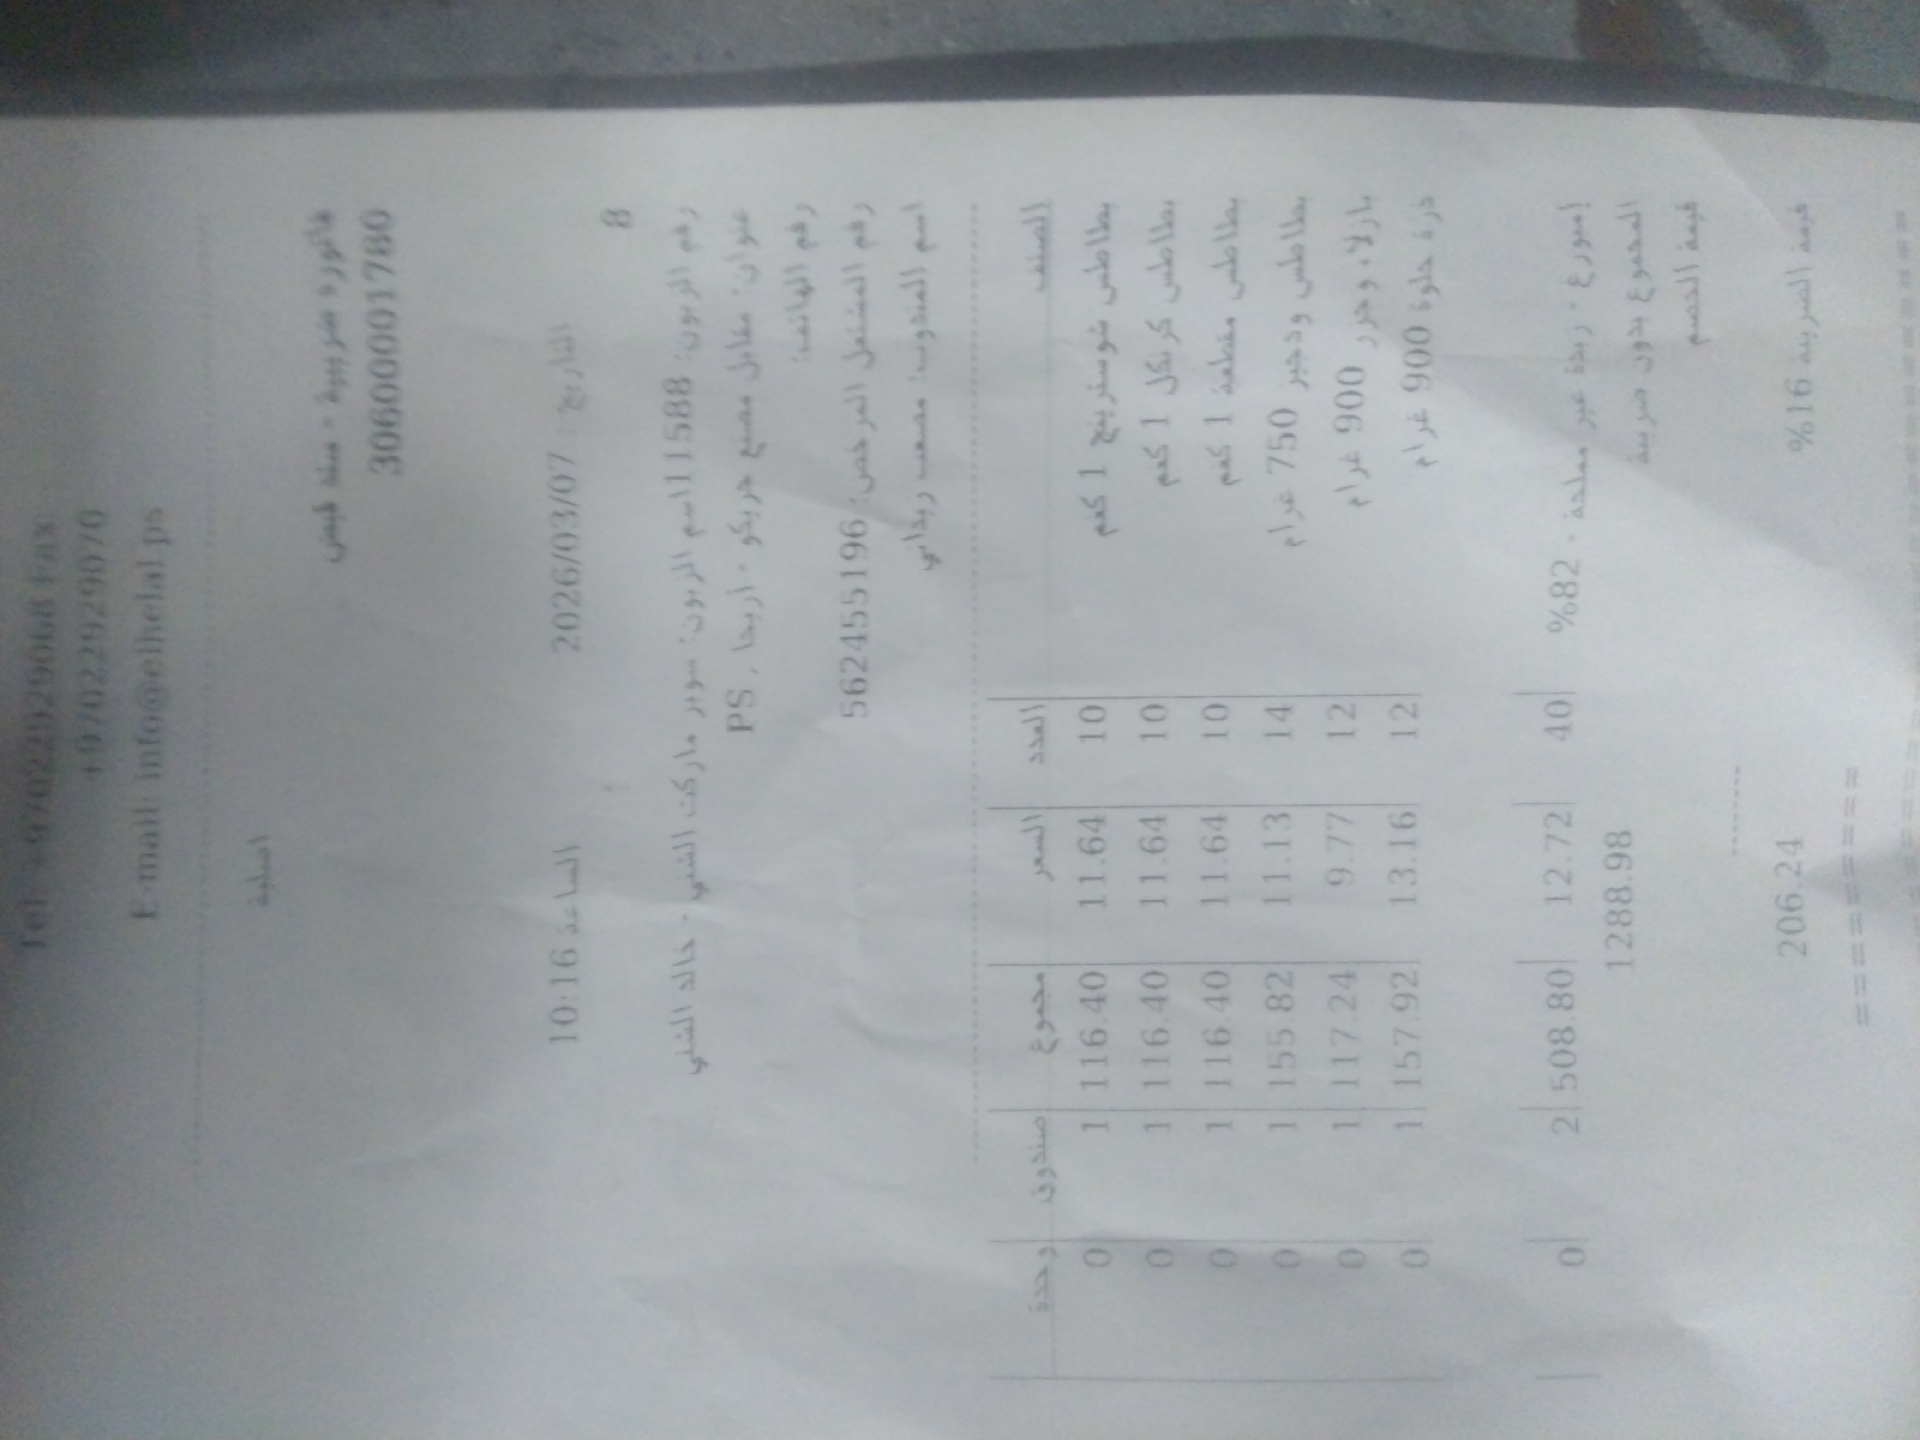 Tel: +97022929068 Fax:
+97022929070
E-mail: info@elhelal.ps
اصلية
فاتورة ضريبية - سند قبض
30600001780
التاريخ: 2026/03/07 الساعة 10:16
8
رقم الزبون: 11588 اسم الزبون: سوبر ماركت الشني - خالد الشني
عنوان: مقابل مصنع جريكو - أريحا , PS
رقم الهاتف:
رقم المشتغل المرخص: 562455196
اسم المندوب: مصعب زيداني
الصنف العدد السعر مجموع صندوق وحدة
بطاطس شوسترينج 1 كغم 10 11.64 116.40 1 0
بطاطس كرنكل 1 كغم 10 11.64 116.40 1 0
بطاطس مقطعة 1 كغم 10 11.64 116.40 1 0
بطاطس ودجيز 750 غرام 14 11.13 155.82 1 0
بازلاء وجزر 900 غرام 12 9.77 117.24 1 0
ذرة حلوة 900 غرام 12 13.16 157.92 1 0
زبدة غير مملحة - 82% 40 12.72 508.80 2 0
المجموع بدون ضريبة 1288.98
قيمة الخصم
قيمة الضريبة 16% 206.24